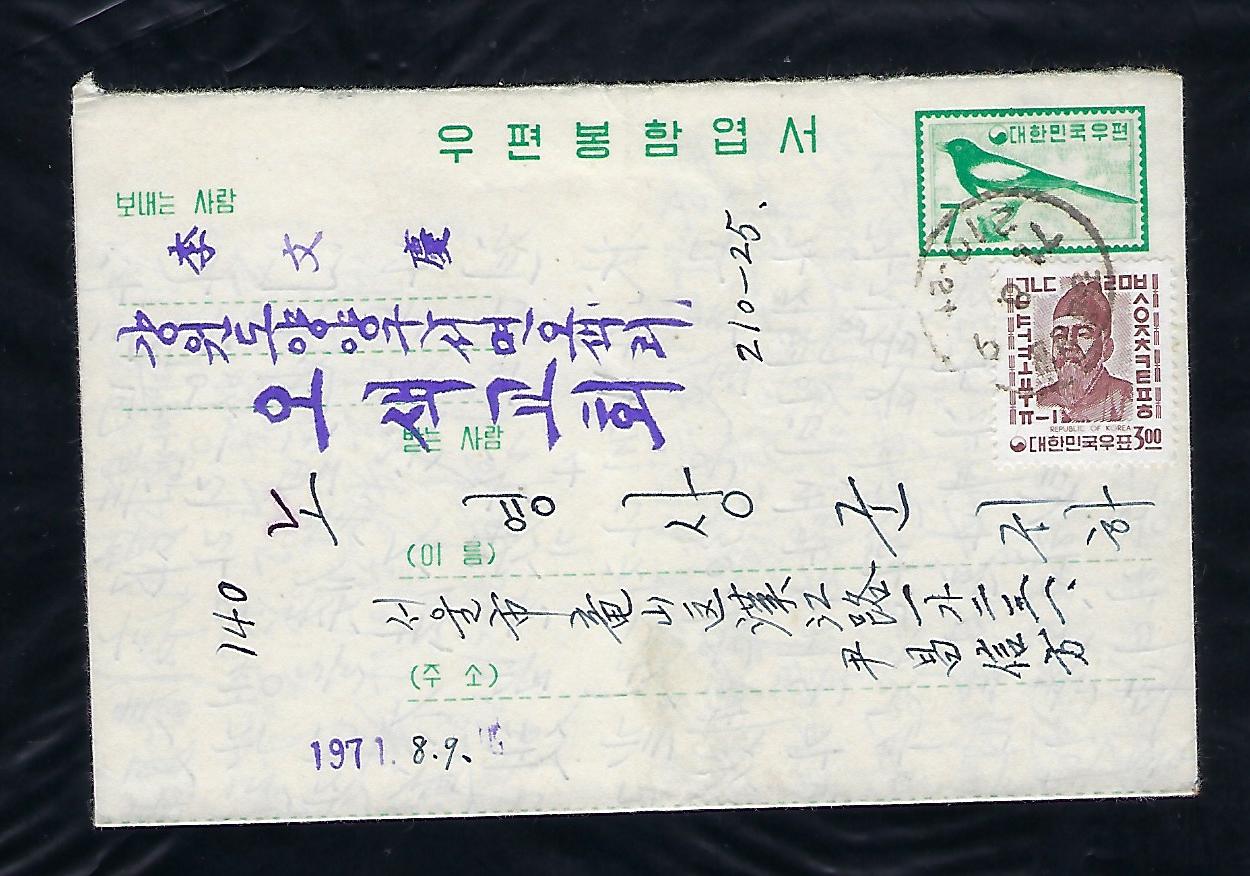 우편봉함엽서
대한민국우편
7
보내는 사람
李文慶
강원도 양양군 서면 오색리
오색교회
210-25.
받는 사람
REPUBLIC OF KOREA
대한민국우표 3.00
노영상군 귀하
(이름)
140
서울市 龍山区 漢江路 一가
(주소)
1971. 8.9.